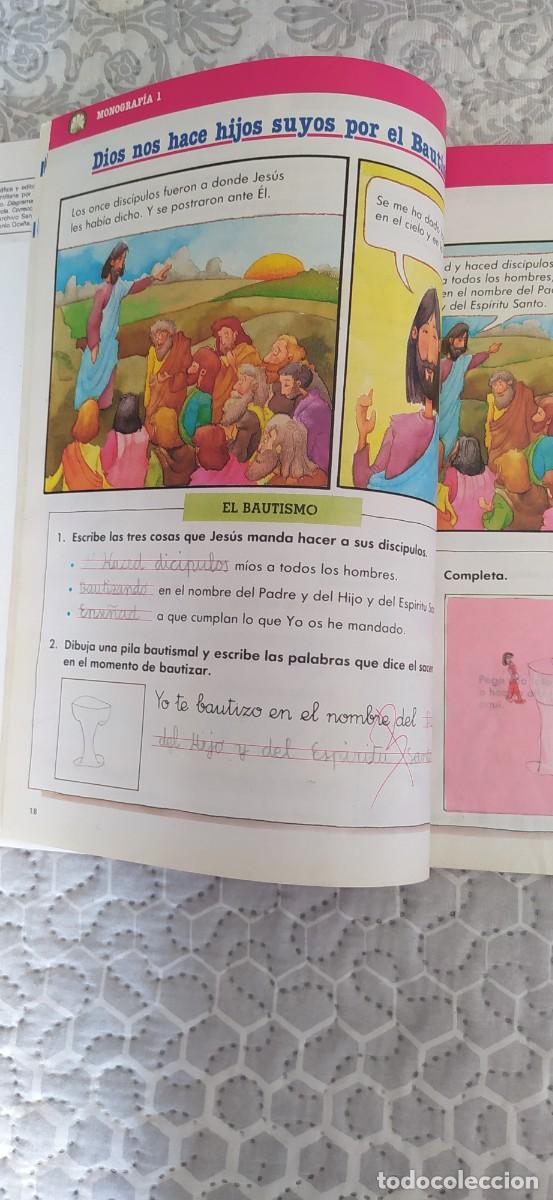 MONOGRAFÍA 1
Dios nos hace hijos suyos por el
Los once discípulos fueron a donde Jesús
les había dicho. Y se postraron ante Él.
Se me ha
en el cielo y
d y haced discípulos
a todos los hombres,
en el nombre del
del Espíritu Santo.
EL BAUTISMO
1. Escribe las tres cosas que Jesús manda hacer a sus discípulos.
• Haced dicipulos míos a todos los hombres.
• Bautizando en el nombre del Padre y del Hijo y del Espíritu
• Enseñad a que cumplan lo que Yo os he mandado.
2. Dibuja una pila bautismal y escribe las palabras que dice el
en el momento de bautizar.
Yo te bautizo en el nombre del
del Hijo y del Espiritu Santo
18
Completa.
Pega
o
aquí.
todocoleccion